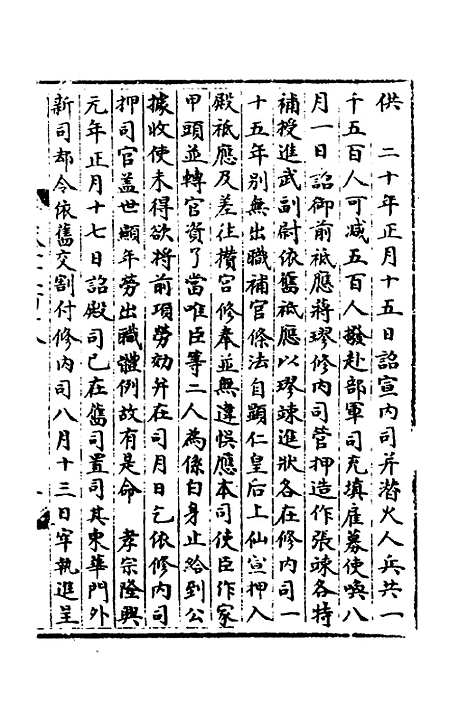 供　二十年正月十五日詔宣內司并潛火人兵共一
千五百人可減五百人撥赴部軍司充填雇募使喚八
月一日詔御前祗應蔣璆修內司管押造作張竦各特
補授進武副尉依舊祗應以璆竦進狀各在修內司一
十五年別無出職補官條法自顯仁皇后上仙宣押入
殿祗應及差往攢宮修奉並無違悞應本司使臣作家
甲頭並轉官資了當唯臣等二人為係白身止給到公
據收使未得欲將前項勞効并在司月日乞依修內司
押司官蓋世顯年勞出職體例故有是命　孝宗隆興
元年正月十七日詔殿司已在舊司置司其東華門外
新司却令依舊交割付修內司八月十三日宰執進呈